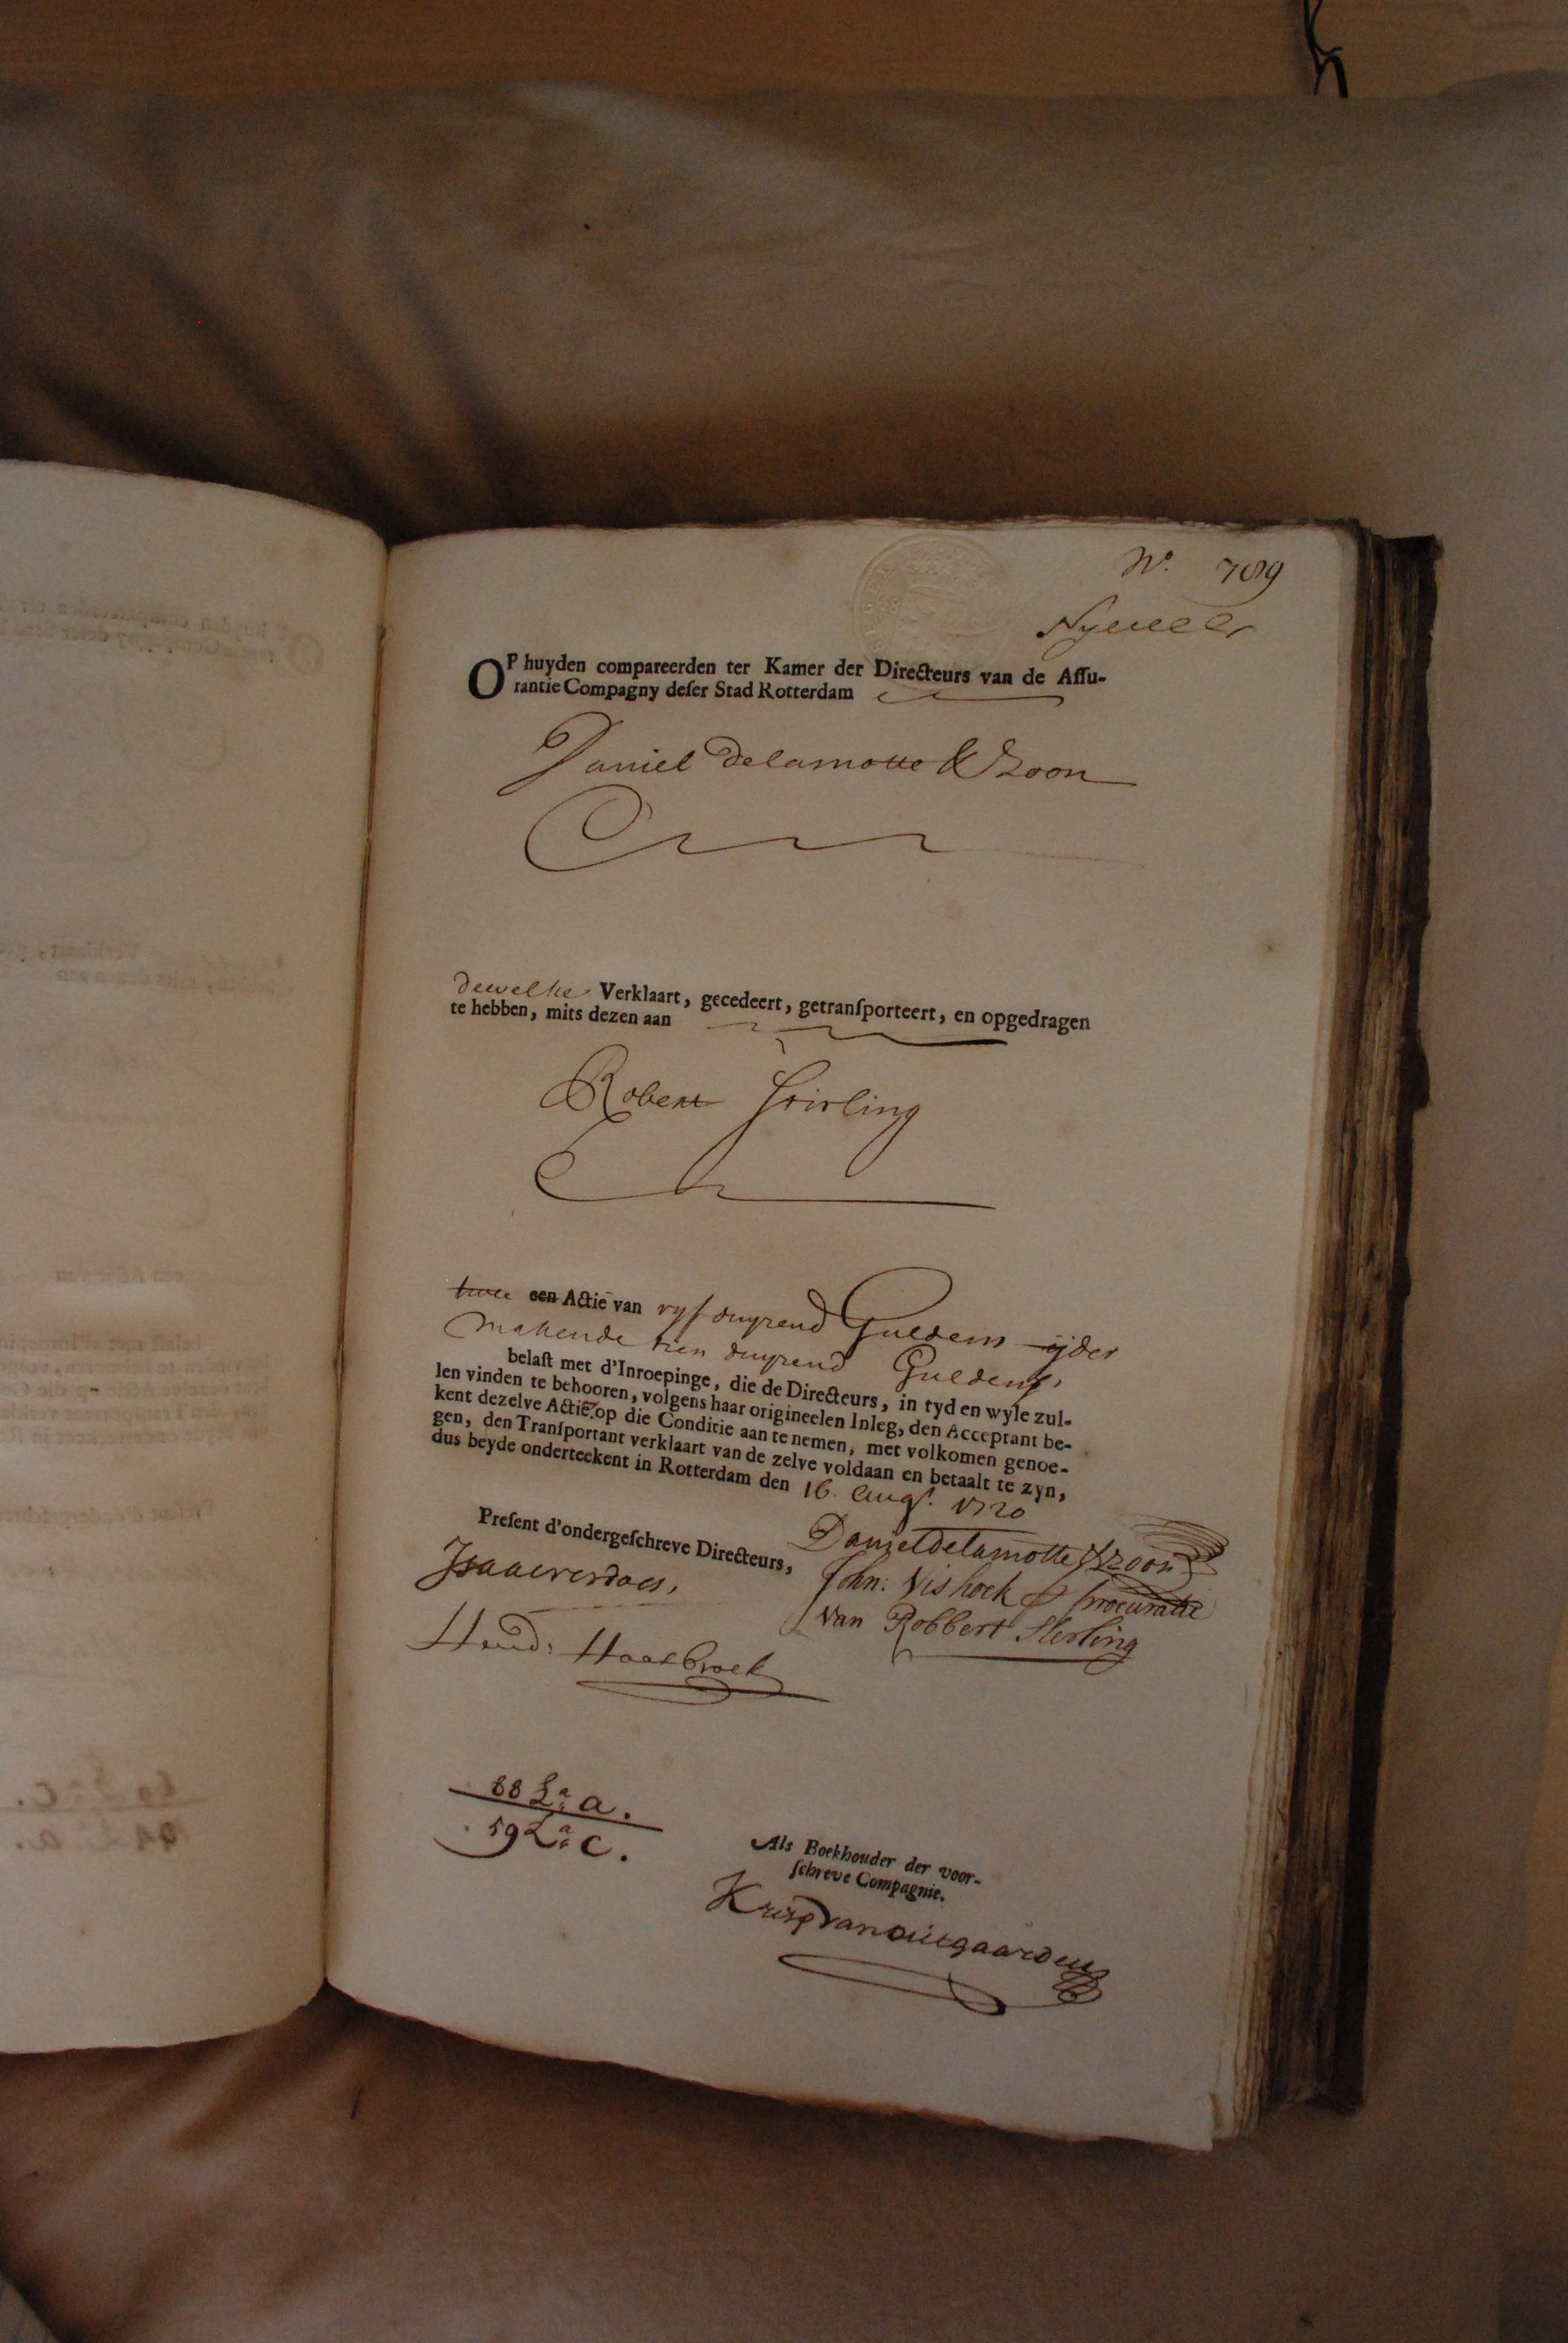 N.º 789
OP huyden compareerden ter Kamer der Directeurs van de Assu-
rantie Compagny deser Stad Rotterdam
Daniel delamotte & Zoon
dewelke Verklaart, gecedeert, getransporteert, en opgedragen
te hebben, mits dezen aan
Robert Stirling
twee een Actie van vyf duyzend Guldens ijder
makende tien duyzend Guldens,
belast met d'Inroepinge, die de Directeurs, in tyd en wyle zul-
len vinden te behooren, volgens haar origineelen Inleg, den Acceptant be-
kent dezelve Actie op die Conditie aan te nemen, met volkomen genoe-
gen, den Transportant verklaart van de zelve voldaan en betaalt te zyn,
dus beyde onderteekent in Rotterdam den 16. Augt. 1720
Present d'ondergeschreve Directeurs,
Daniel delamotte & Zoon
John: Vishoek procuratie
van Robbert Sterling
Isaac verdoes,
Hend: Haasbroek
88 La: a.
59 La: c.
Als Boekhouder der voor-
schreve Compagnie.
Krisp van outgaarden